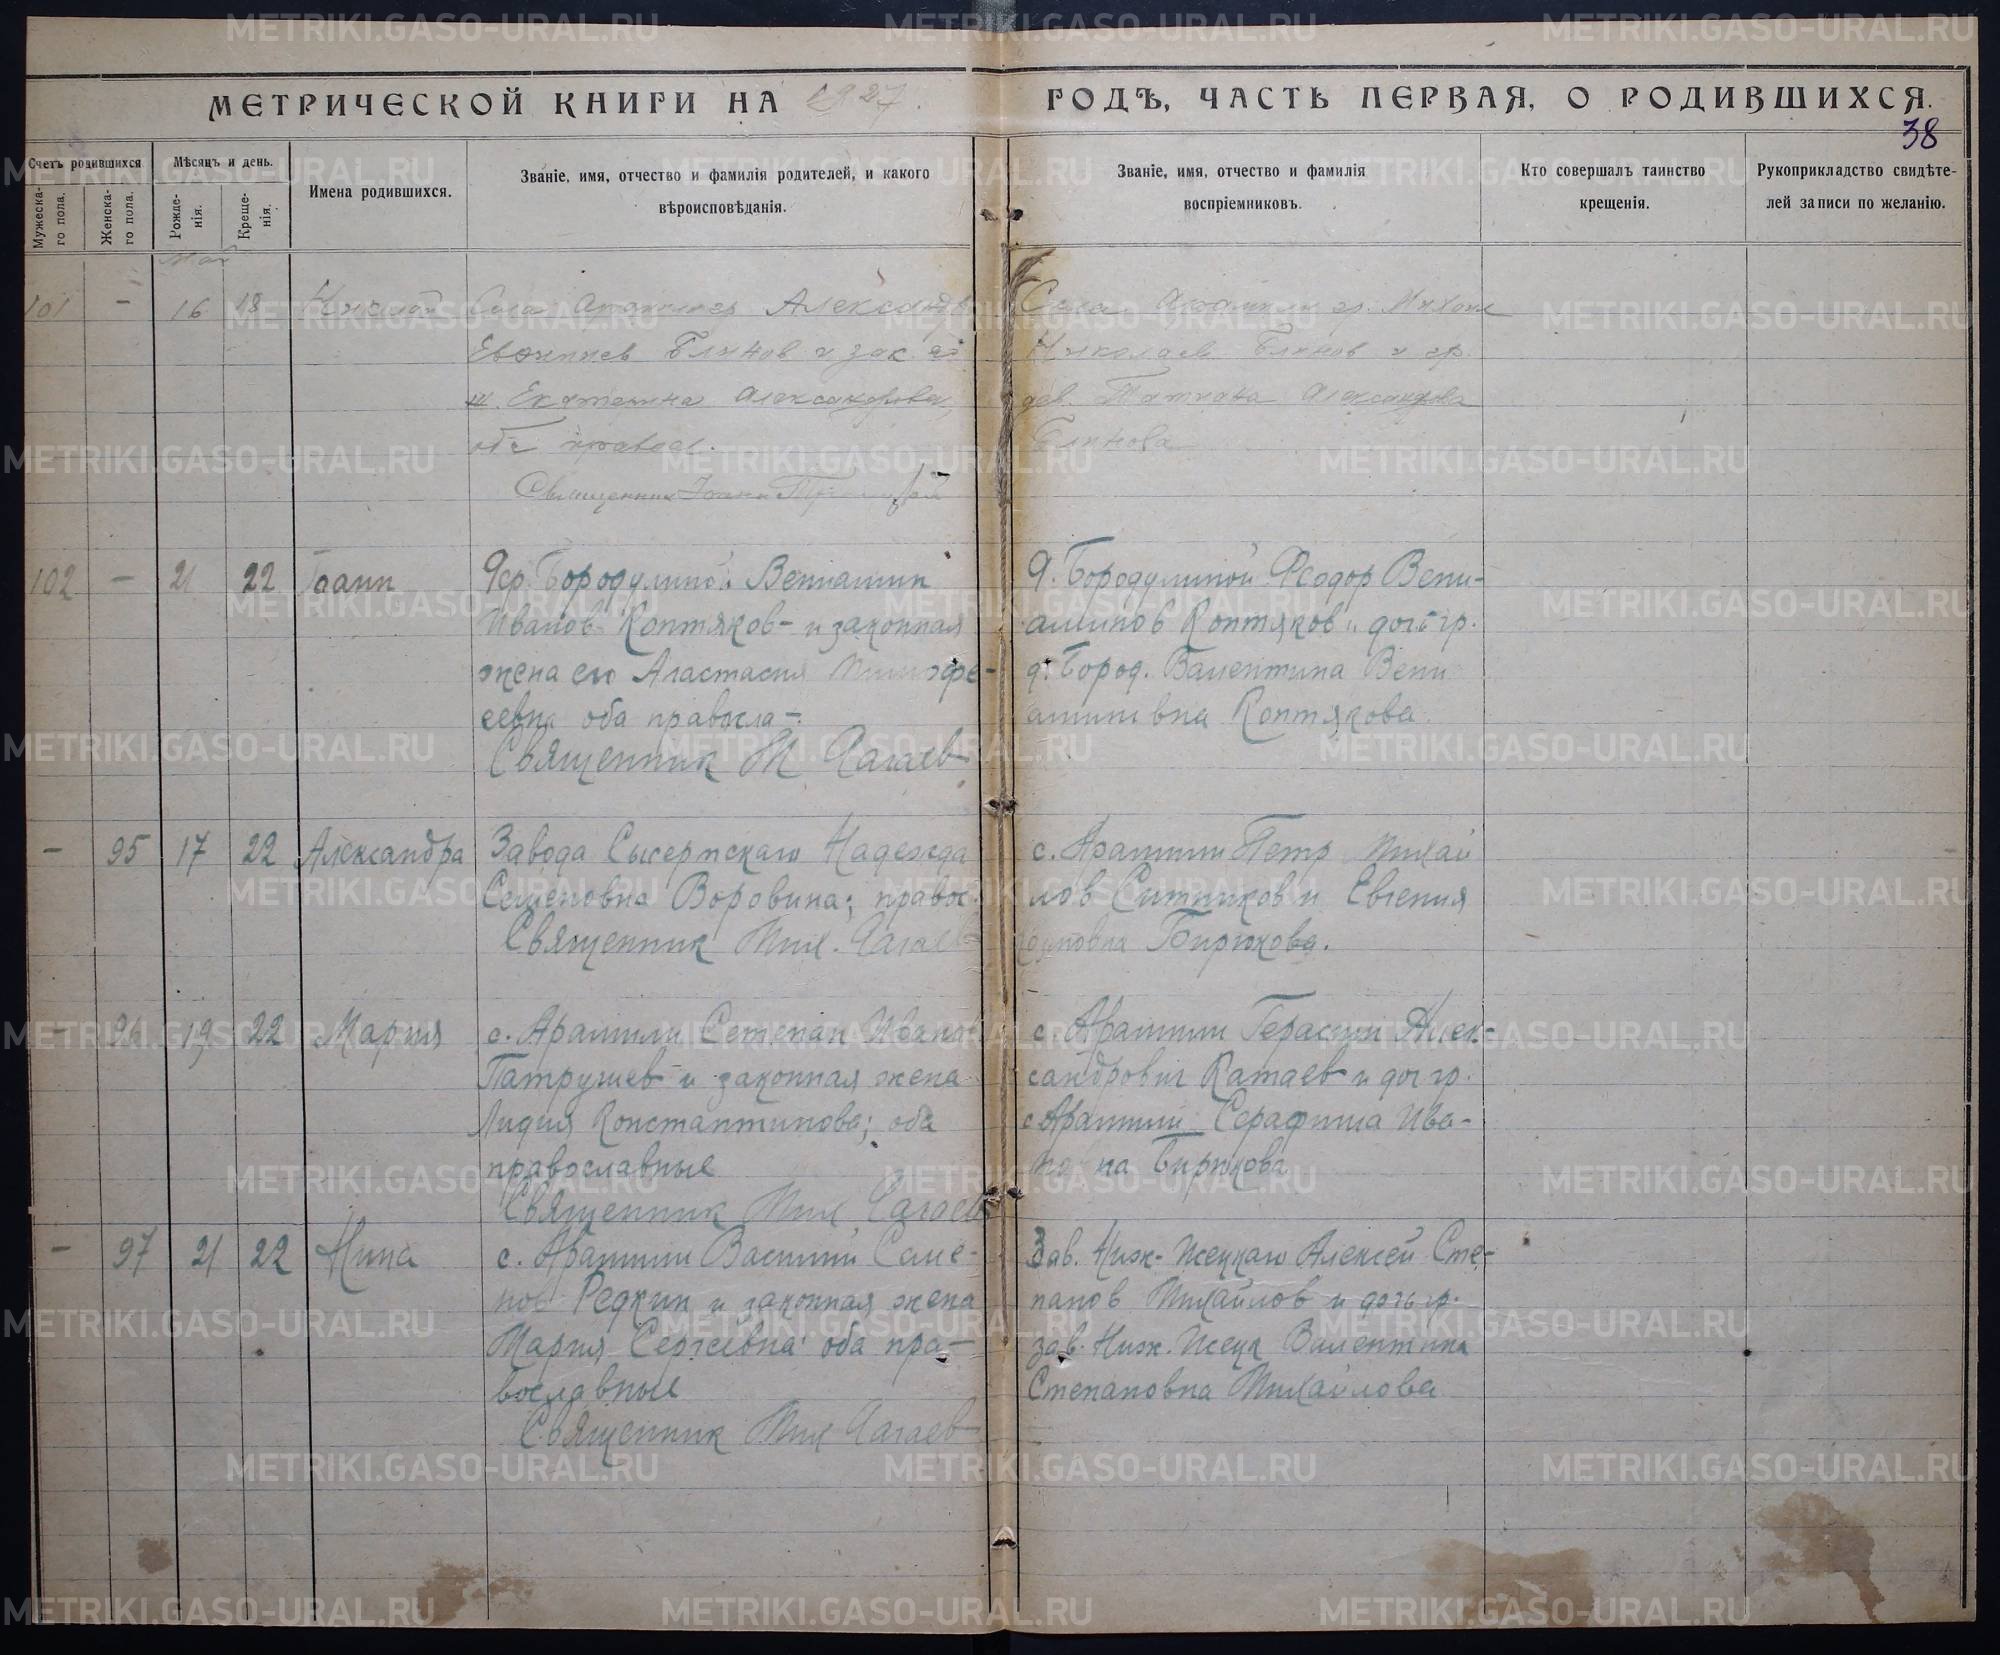 МЕТРИЧЕСКОЙ КНИГИ НА 1927.
ГОДѢ, ЧАСТЬ ПЕРВАЯ, О РОДИВШИХСЯ.
38
Счетъ родившихся
Мужеска-
го пола.
Женска-
го пола.
Мѣсяцъ и день.
Рожде-
нія.
Креще-
нія.
Имена родившихся.
Званіе, имя, отчество и фамилія родителей, и какого
вѣроисповѣданія.
Званіе, имя, отчество и фамилія
воспріемниковъ.
Кто совершалъ таинство
крещенія.
Рукоприкладство свидѣте-
лей записи по желанію.
Май
101 - 16 18 Николай
Села Арамили гр. Александр
Блинов и зак. ег
ж. Екатерина Александрова,
оба правосл.
Священник Іоанн
Села Арамили гр. Михаил
Николаев Блинов и гр.
дев. Татиана Александрова
Блинова
102 - 21 22 Іоанн
Бородулиной Вениамин
Иванов Коптяков и законная
жена его Анастасия Тимофе-
евна оба правосла-
Священник М Чагаев
Д. Бородулиной Феодор Вени-
аминов Коптяков и дочь гр.
д. Бород. Валентина Вени
аминовна Коптякова
- 95 17 22 Александра
Завода Сысертскаго Надежда
Семеновна Воровина; правос.
Священник Мих. Чагаев
с. Арамили Петр Михай
лов Ситников и Евгения
Бирюкова.
- 96 19 22 Мария
с. Арамили Стетепан Иванов
Патрушев и законная жена
Лидия Константинова; оба
православные
Священник Мих Чагаев
с. Арамили Герасим Алек-
сандрович Катаев и доч гр.
с Арамили Серафима Ива-
но на Бирюкова
- 97 21 22 Нина
с. Арамили Василий Семе-
нов Редкин и законная жена
Мария Сергеевна оба пра-
вославные
Священник Мих Чагаев
Зав. Ниж- Исецкаго Алексей Сте-
панов Михайлов и дочь гр.
зав. Ниж. Исецк Валентина
Степановна Михайлова
METRIKI.GASO-URAL.RU